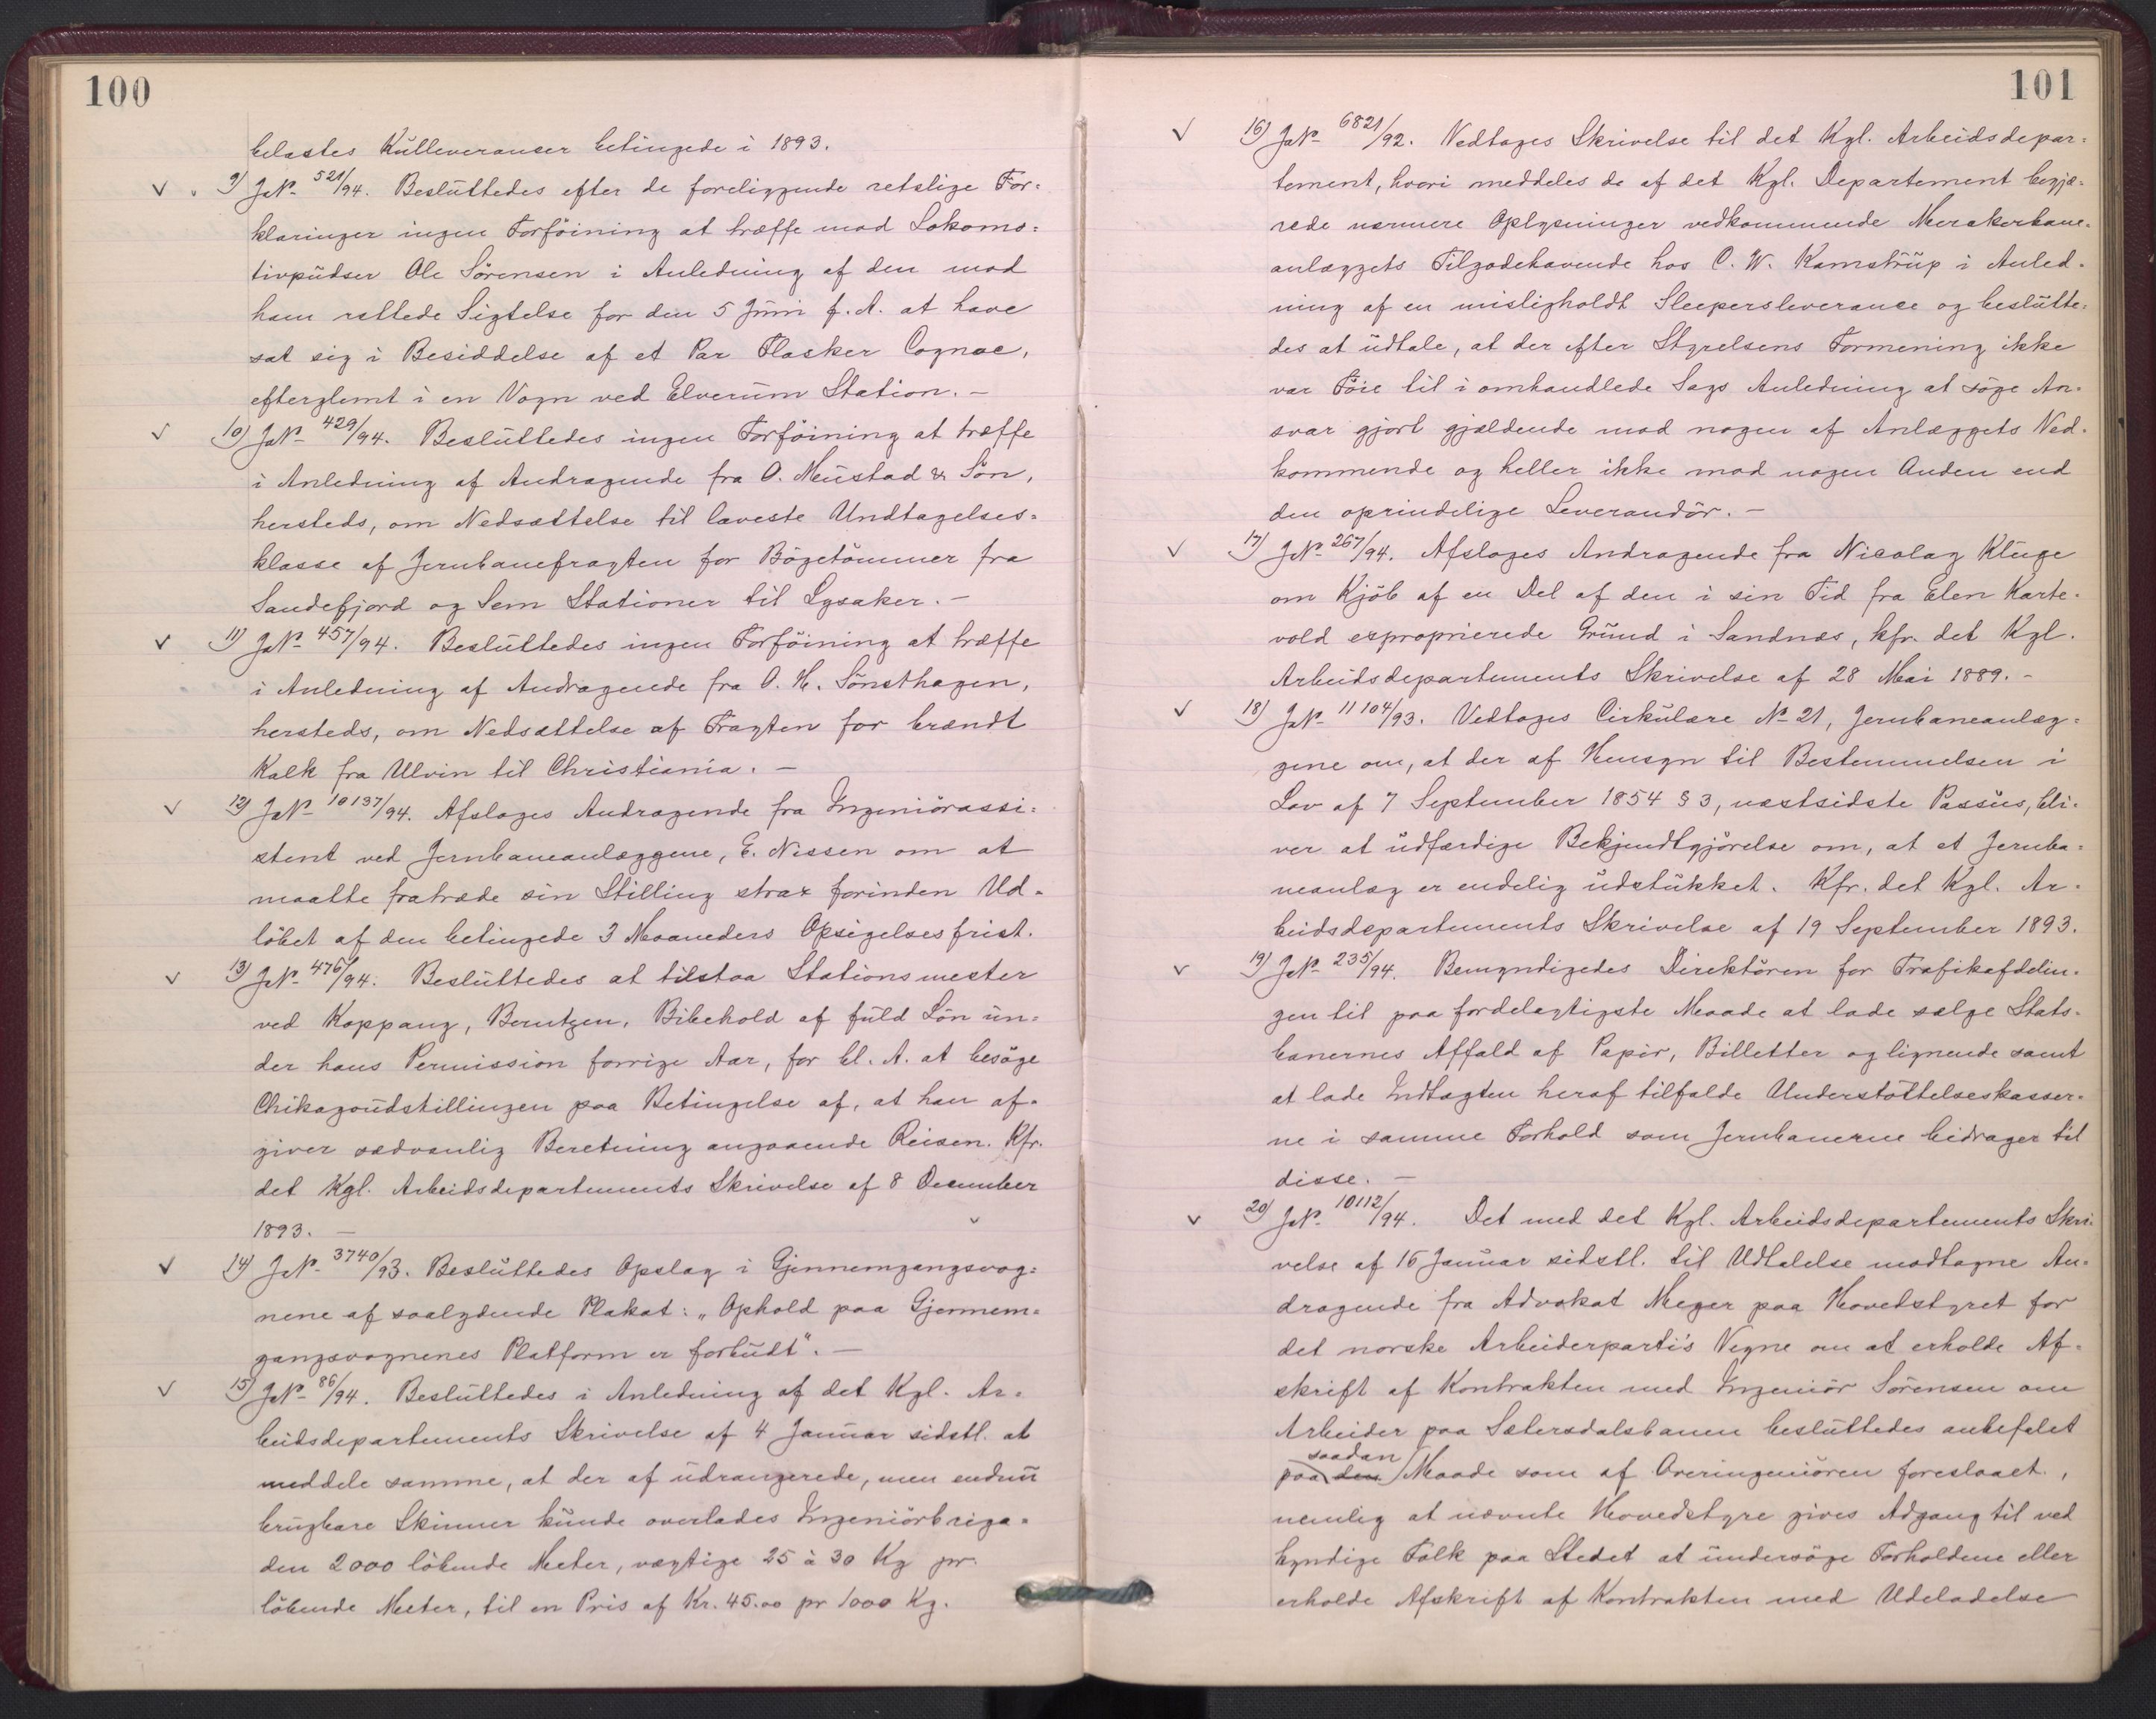 100
belastes Kulleveranser betingede i 1893.
9) JNo 521/94. Besluttedes efter de foreliggende retslige For=
klaringer ingen Forföining at træffe mod Lokomo=
tivpudser Ole Sörensen i Anledning af den mod
ham rettede Sigtelse for den 5 Juni f. A. at have
sat sig i Besiddelse af et Par Flasker Cognac,
efterglemt i en Vogn ved Elverum Station. –
10) JNo 429/94. Besluttedes ingen Forföining at træffe
i Anledning af Andragende fra O. Mustad & Sön,
hersteds, om Nedsættelse til laveste Undtagelses=
klasse af Jernbanefragten for Bögetömmer fra
Sandefjord og Sem Stationer til Lysaker. –
11) JNo 457/94. Besluttedes ingen Forföining at træffe
i Anledning af Andragende fra O. H. Sönsthagen,
hersteds, om Nedsættelse af Fragten for brændt
Kalk fra Ulvin til Christiania. –
12) JNo 10137/94. Afsloges Andragende fra Ingeniörassi=
stent ved Jernbaneanlæggene, E. Nissen om at
maatte fratræde sin Stilling strax forinden Ud=
löbet af den betingede 3 Maaneders Opsigelsesfrist.
13) JNo 476/94. Besluttedes at tilstaa Stationsmester
ved Koppang, Berntzen, Bibehold af fuld Lön un=
der hans Permission forrige Aar, for bl. A. at besöge
Chikagoudstillingen paa Betingelse af, at han af=
giver sædvanlig Beretning angaaende Reisen. Kfr.
det Kgl. Arbeidsdepartements Skrivelse af 8 December
1893. –
14) JNo 3740/93. Besluttedes Opslag i Gjennemgangsvog=
nene af saalydende Plakat: „Ophold paa Gjennem=
gangsvognenes Platform er forbudt“. –
15) JNo 86/94. Besluttedes i Anledning af det Kgl. Ar=
beidsdepartements Skrivelse af 4 Januar sidstl. at
meddele samme, at der af udrangerede, men endnu
brugbare Skinner kunde overlades Ingeniörbriga=
den 2000 löbende Meter, vægtige 25 à 30 Kg pr.
löbende Meter, til en Pris af Kr. 45.00 pr 1000 Kg.
101
16) JNo 6821/92. Vedtoges Skrivelse til det Kgl. Arbeidsdepar=
tement, hvori meddeles de af det Kgl. Departement begjæ=
rede nærmere Oplysninger vedkommende Merakerbane=
anlæggets Tilgodehavende hos C. W. Kamstrup i Anled=
ning af en misligholdt Sleepersleverance og beslutte=
des at udtale, at der efter Styrelsens Formening ikke
var Föie til i omhandlede Sags Anledning at söge An=
svar gjort gjældende mod nogen af Anlæggets Ved=
kommende og heller ikke mod nogen Anden end
den oprindelige Leverandör. –
17) JNo 267/94. Afsloges Andragende fra Nicolay Kluge
om Kjöb af en Del af den i sin Tid fra Elen Karte=
vold exproprierede Grund i Sandnæs, kfr. det Kgl.
Arbeidsdepartements Skrivelse af 28 Mai 1889. –
18) JNo 11104/93. Vedtoges Cirkulære No 21, Jernbaneanlæg=
gene om, at der af Hensyn til Bestemmelsen i
Lov af 7 September 1854 § 3, næstsidste Passus, bli=
ver at udfærdige Bekjendtgjörelse om, at et Jernba=
neanlæg er endelig udstukket. Kfr. det Kgl. Ar=
beidsdepartements Skrivelse af 19 September 1893.
19) JNo 235/94. Bemyndigedes Direktören for Trafikafdelin=
gen til paa fordelagtigste Maade at lade sælge Stats=
banernes Affald af Papir, Billetter og lignende samt
at lade Indtægten heraf tilfalde Understöttelseskasser=
ne i samme Forhold som Jernbanerne bidrager til
disse. –
20) JNo 10112/94. Det med det Kgl. Arbeidsdepartements Skri=
velse af 16 Januar sidstl. til Udtalelse modtagne An=
dragende fra Advokat Meyer paa Hovedstyret for
det norske Arbeiderparti's Vegne om at erholde Af=
skrift af Kontrakten med Ingeniör Sörensen om
Arbeider paa Sætersdalsbanen besluttedes anbefalet
saadan
paa den Maade som af Overingeniören foreslaaet,
nemlig at nævnte Hovedstyre gives Adgang til ved
kyndige Folk paa Stedet at undersöge Forholdene eller
erholde Afskrift af Kontrakten med Udeladelse